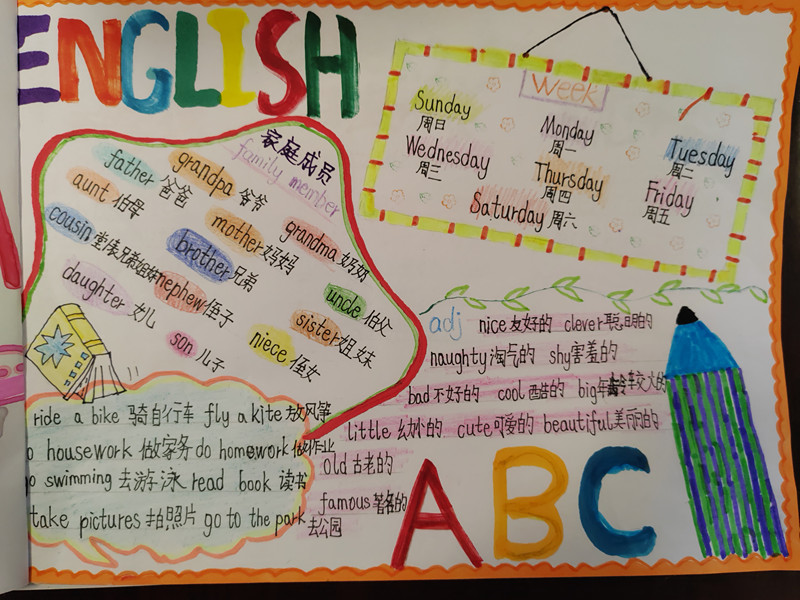 ENGLISH
家庭成员
family member
father 爸爸
grandpa 爷爷
aunt 伯母
mother 妈妈
grandma 奶奶
cousin 堂(表)兄弟姐妹
brother 兄弟
uncle 伯父
daughter 女儿
nephew 侄子
sister 姐妹
son 儿子
niece 侄女
Week
Sunday
周日
Monday
周一
Tuesday
周二
Wednesday
周三
Thursday
周四
Friday
周五
Saturday 周六
adj nice 友好的 clever 聪明的
naughty 淘气的 shy 害羞的
bad 不好的 cool 酷的 big 年龄较大的
little 幼小的 cute 可爱的 beautiful 美丽的
old 古老的
famous 著名的
ride a bike 骑自行车 fly a kite 放风筝
o housework 做家务 do homework 做作业
o swimming 去游泳 read book 读书
take pictures 拍照片 go to the park 去公园
ABC